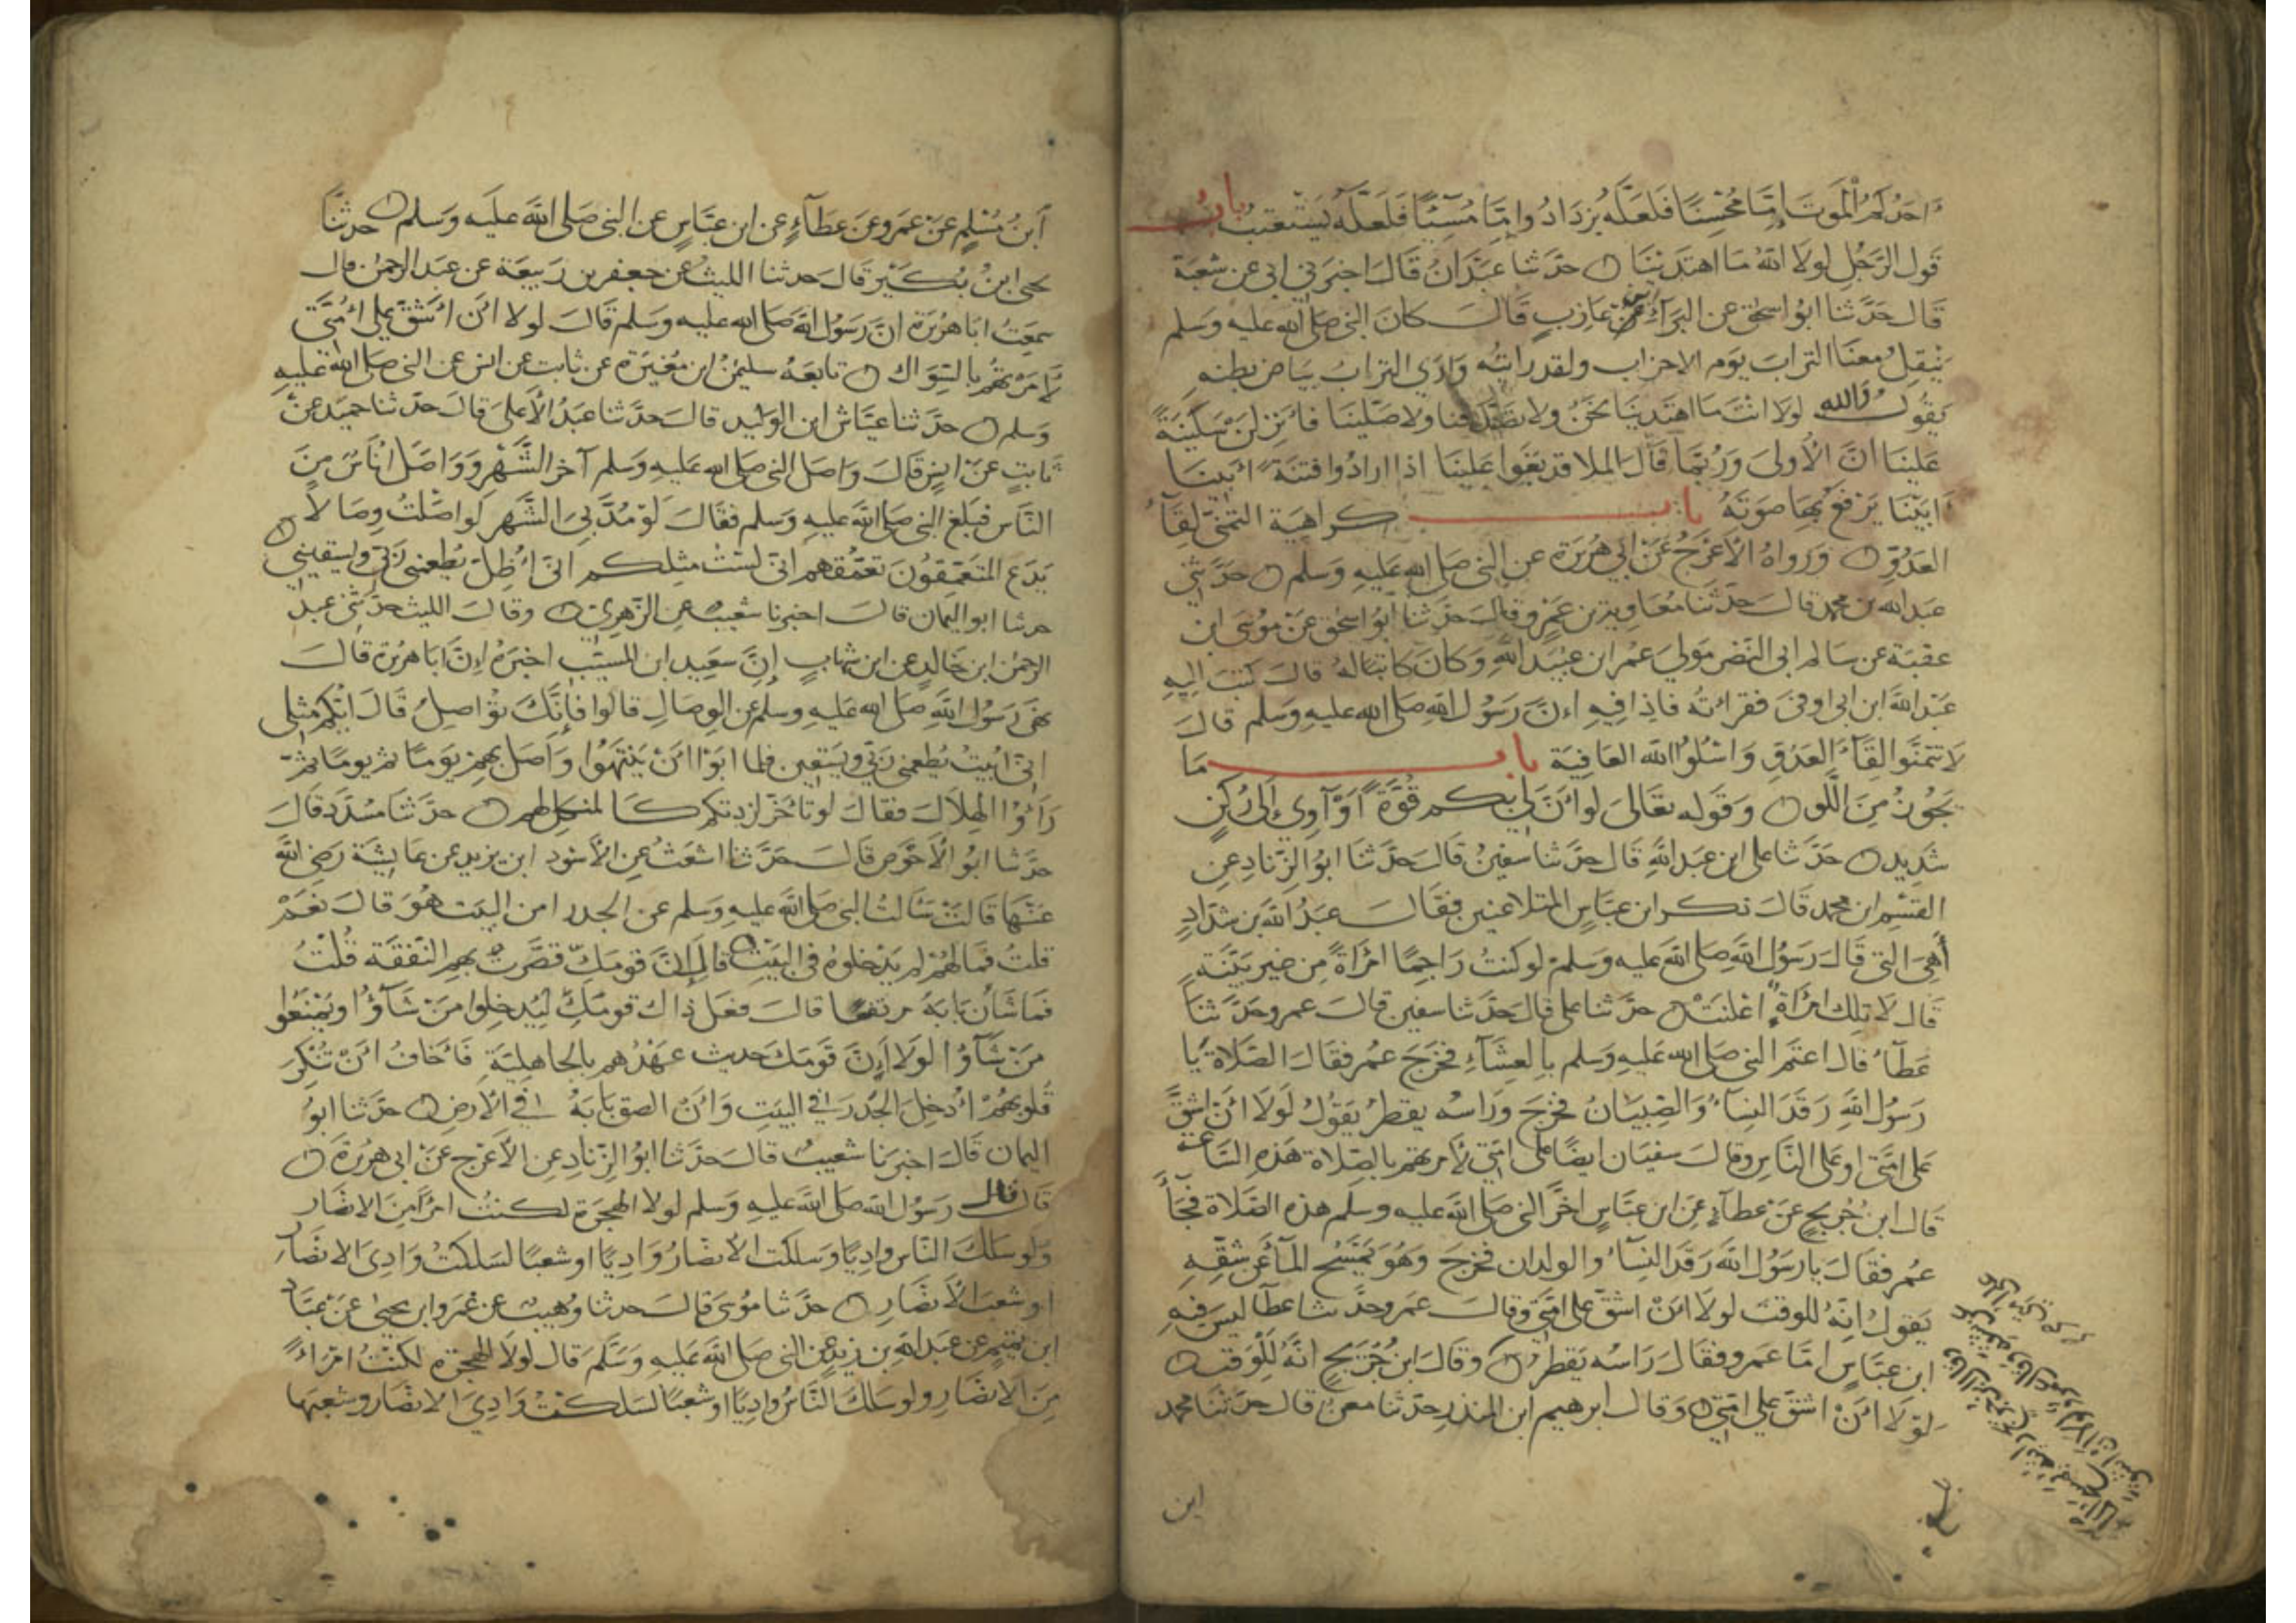 احدكم الموت اما محسنا فلعله يزداد واما مسيئا فلعله يستعتب باب
قول الرجل لولا الله ما اهتدينا حدثنا عبدان قال اخبرني ابي عن شعبة
قال حدثنا ابو اسحق عن البراء بن عازب قال كان النبي صلى الله عليه وسلم
ينقل معنا التراب يوم الاحزاب ولقد رايته وارى التراب بياض بطنه
يقول والله لولا انت ما اهتدينا نحن ولا تصدقنا ولا صلينا فانزلن سكينة
علينا ان الاولى وربما قال الملا قد بغوا علينا اذا ارادوا فتنة ابينا
ابينا يرفع بها صوته باب كراهية التمني لقاء
العدو ورواه الاعرج عن ابي هريرة عن النبي صلى الله عليه وسلم حدثني
عبد الله بن محمد قال حدثنا معاوية بن عمرو قال حدثنا ابو اسحق عن موسى ابن
عقبة عن سالم ابي النضر مولى عمر ابن عبيد الله وكان كاتبا له قال كتب اليه
عبد الله ابن ابي اوفى فقراته فاذا فيه ان رسول الله صلى الله عليه وسلم قال
لا تتمنوا لقاء العدو واسئلوا الله العافية باب ما
يجوز من اللو وقوله تعالى لو ان لي بكم قوة او آوي الى ركن
شديد حدثنا على ابن عبد الله قال حدثنا سفين قال حدثنا ابو الزناد عن
القسم ابن محمد قال ذكر ابن عباس المتلاعنين فقال عبد الله بن شداد
أهي التي قال رسول الله صلى الله عليه وسلم لو كنت راجما امراة من غير بينة
قال لا تلك امراة اعلنت حدثنا على قال حدثنا سفين قال عمرو حدثنا
عطاء قال اعتم النبي صلى الله عليه وسلم بالعشاء فخرج عمر فقال الصلاة يا
رسول الله رقد النساء والصبيان فخرج وراسه يقطر يقول لولا ان اشق
على امتي او على الناس وقال سفيان ايضا على امتي لأمرتهم بالصلاة هذه الساعة
قال ابن جريج عن عطاء عن ابن عباس اخر النبي صلى الله عليه وسلم هذه الصلاة فجاء
عمر فقال يا رسول الله رقد النساء والولدان فخرج وهو يمسح الماء عن شقه
يقول انه للوقت لولا ان اشق على امتي وقال عمرو حدثنا عطا ليس فيه
ابن عباس اما عمرو فقال راسه يقطر وقال ابن جريج انه للوقت
لولا ان اشق على امتي وقال ابرهيم ابن المنذر حدثنا معن قال حدثنا محمد
ابن
ابن مسلم عن عمرو عن عطاء عن ابن عباس عن النبي صلى الله عليه وسلم حدثنا
يحيى ابن بكير قال حدثنا الليث عن جعفر بن ربيعة عن عبد الرحمن قال
سمعت ابا هريرة ان رسول الله صلى الله عليه وسلم قال لولا ان اشق على امتي
لأمرتهم بالسواك تابعه سليمن ابن مغيرة عن ثابت عن انس عن النبي صلى الله عليه
وسلم حدثنا عياش ابن الوليد قال حدثنا عبد الأعلى قال حدثنا حميد عن
ثابت عن انس قال واصل النبي صلى الله عليه وسلم آخر الشهر وواصل اناس من
الناس فبلغ النبي صلى الله عليه وسلم فقال لو مد بي الشهر لواصلت وصالا
يدع المتعمقون تعمقهم اني لست مثلكم اني اظل يطعمني ربي ويسقيني
حدثنا ابو اليمان قال اخبرنا شعيب عن الزهري وقال الليث حدثني عبد
الرحمن ابن خالد عن ابن شهاب ان سعيد ابن المسيب اخبره ان ابا هريرة قال
نهى رسول الله صلى الله عليه وسلم عن الوصال قالوا فانك تواصل قال ايكم مثلي
اني ابيت يطعمني ربي ويسقين فلما ابوا ان ينتهوا واصل بهم يوما ثم يوما ثم
رأوا الهلال فقال لو تأخر لزدتكم كالمنكل لهم حدثنا مسدد قال
حدثنا ابو الأحوص قال حدثنا اشعث عن الأسود ابن يزيد عن عايشة رضي الله
عنها قالت سالت النبي صلى الله عليه وسلم عن الجدر امن البيت هو قال نعم
قلت فما لهم لم يدخلوه في البيت قال ان قومك قصرت بهم النفقة قلت
فما شأن بابه مرتفعا قال فعل ذاك قومك ليدخلوا من شاؤا ويمنعوا
من شآؤا لولا ان قومك حديث عهدهم بالجاهلية فاخاف ان تنكر
قلوبهم ان ادخل الجدر في البيت وان الصق بابه في الأرض حدثنا ابو
اليمان قال اخبرنا شعيب قال حدثنا ابو الزناد عن الأعرج عن ابي هريرة
قال قال رسول الله صلى الله عليه وسلم لولا الهجرة لكنت امرأ من الانصار
ولو سلك الناس واديا وسلكت الأنصار واديا او شعبا لسلكت وادي الانصار
او شعب الأنصار حدثنا موسى قال حدثنا وهيب عن عمرو ابن يحيى عن عباد
ابن تميم عن عبد الله بن زيد عن النبي صلى الله عليه وسلم قال لولا الهجرة لكنت امراء
من الانصار ولو سلك الناس واديا او شعبا لسلكت وادي الانصار وشعبها